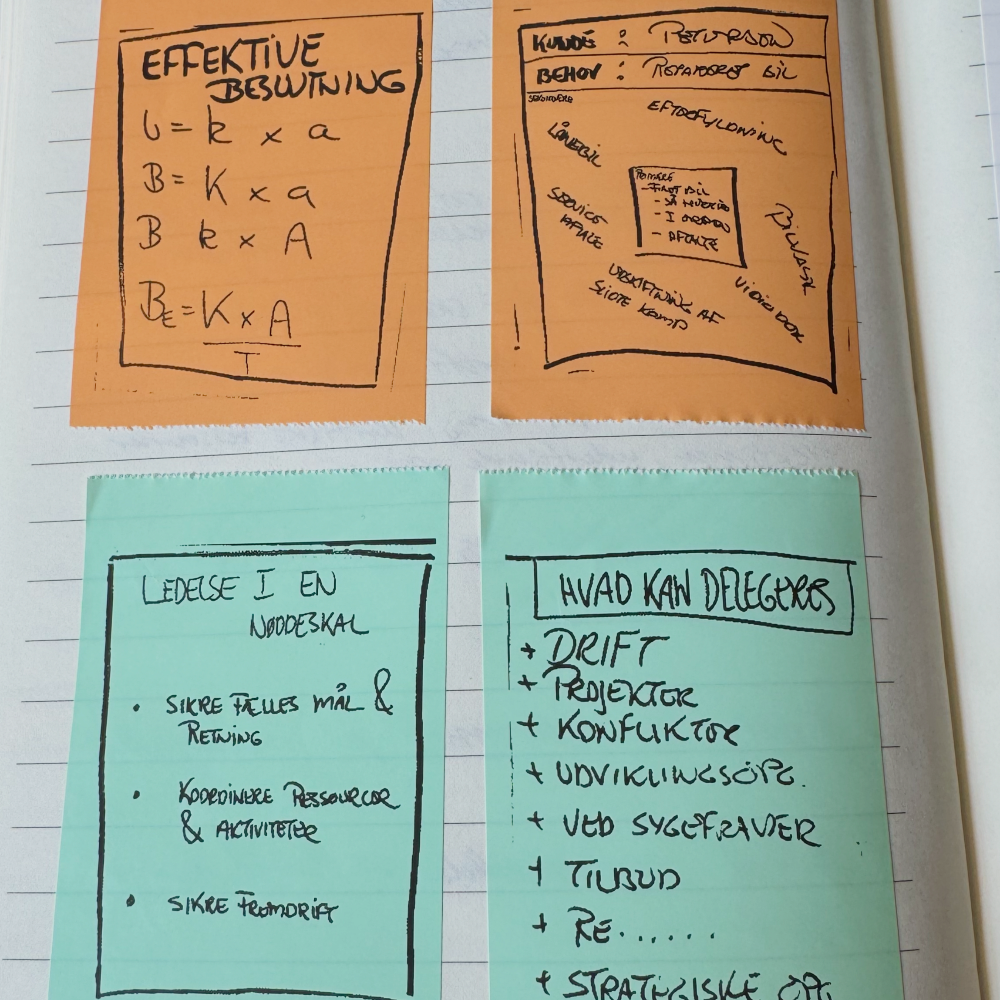 EFFEKTIVE
BESLUTNING
b = k x a
B = K x a
B k x A
BE = K x A
T
KUNDE : PETERSEN
BEHOV : REPARERET BIL
SEKUNDÆRE
EFTERFYLDNING
LÅNEBIL
PRIMÆRE
- FIKST BIL
- I ORDEN
- AFTALTE
SERVICE
AFTALE
BILVASK
UDSKIFTNING AF
SLIDTE KOMP
LEDELSE I EN
NØDDESKAL
• SIKRE FÆLLES MÅL &
RETNING
• KOORDINERE RESSOURCER
& AKTIVITETER
• SIKRE FREMDRIFT
HVAD KAN DELEGERES
+ DRIFT
+ PROJEKTER
+ KONFLIKTER
+ UDVIKLINGSOPG.
+ VED SYGEFRAVÆR
+ TILBUD
+ RE......
+ STRATEGISKE OPG.